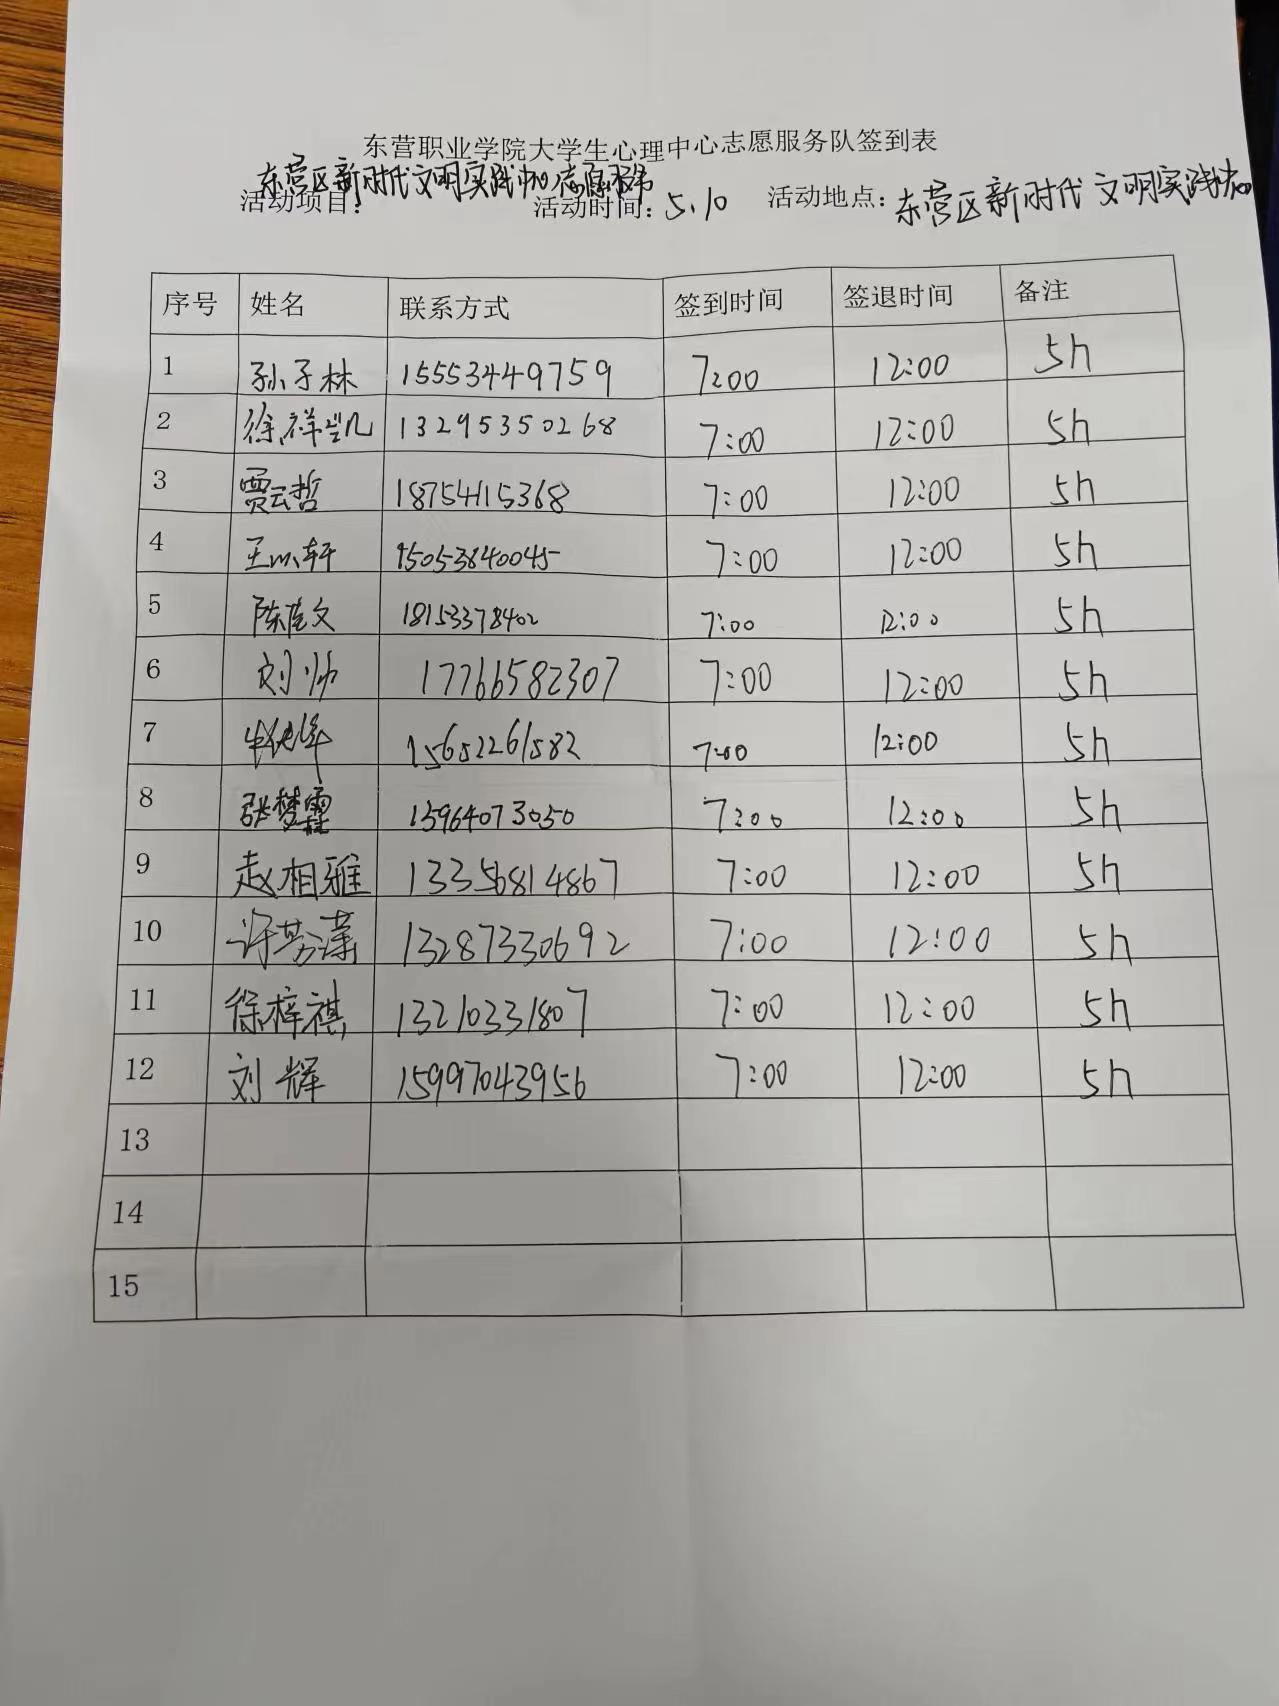 东营职业学院大学生心理中心志愿服务队签到表
东营区新时代文明实践中心志愿服务
活动项目: 活动时间: 5.10 活动地点: 东营区新时代文明实践中心
序号 姓名 联系方式 签到时间 签退时间 备注
1 孙子林 15553449759 7:00 12:00 5h
2 徐祥凯 13295350268 7:00 12:00 5h
3 贾云哲 18754115368 7:00 12:00 5h
4 轩 15053840045 7:00 12:00 5h
5 陈 文 18153378402 7:00 12:00 5h
6 刘帅 17766582307 7:00 12:00 5h
7 15652261582 7:00 12:00 5h
8 张梦霏 15964073050 7:00 12:00 5h
9 赵相雅 13356814867 7:00 12:00 5h
10 许芳潇 13287330692 7:00 12:00 5h
11 徐梓祺 13210331807 7:00 12:00 5h
12 刘辉 15997043956 7:00 12:00 5h
13
14
15